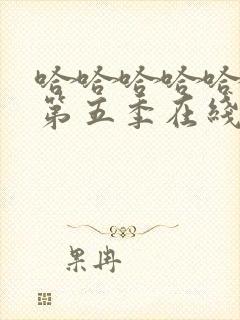 哈哈哈哈哈
第五季在线
果冉